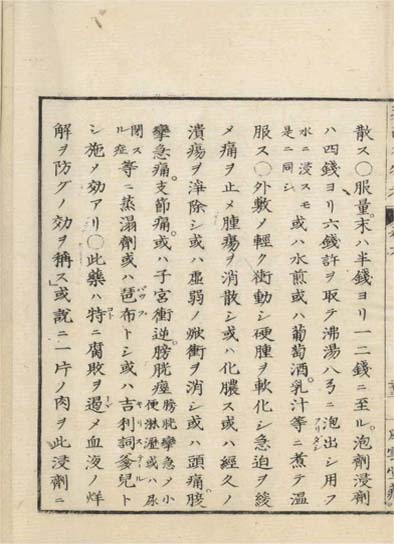 散ス○服量。末ハ半錢ヨリ一二錢ニ至ル。泡劑浸劑
ハ四錢ヨリ六錢許ヲ取テ沸湯八弓ニ泡出シ用フ
水ニ浸スモ是ニ同シ或ハ水煎或ハ葡萄酒。乳汁等ニ煮テ温
服ス○外敷メ輕ク衝動シ硬腫ヲ軟化シ急迫ヲ緩
メ痛ヲ止メ腫瘍ヲ消散シ或ハ化膿ス或ハ經久ノ
潰瘍ヲ滌除シ或ハ虛弱ノ焮衝ヲ消シ或ハ頭痛。腹
攣急痛。支節痛。或ハ子宮衝逆。膀胱痙膀胱攣急ノ小便淋瀝或ハ尿
閉スル症等ニ蒸溻劑或ハ琶布トシ或ハ吉利詞爹兒ト
シ施メ効アリ○此藥ハ特ニ腐敗ヲ遏メ血液ノ烊
解ヲ防グノ効ヲ稱ス」或説ニ一片ノ肉ヲ此浸劑ニ